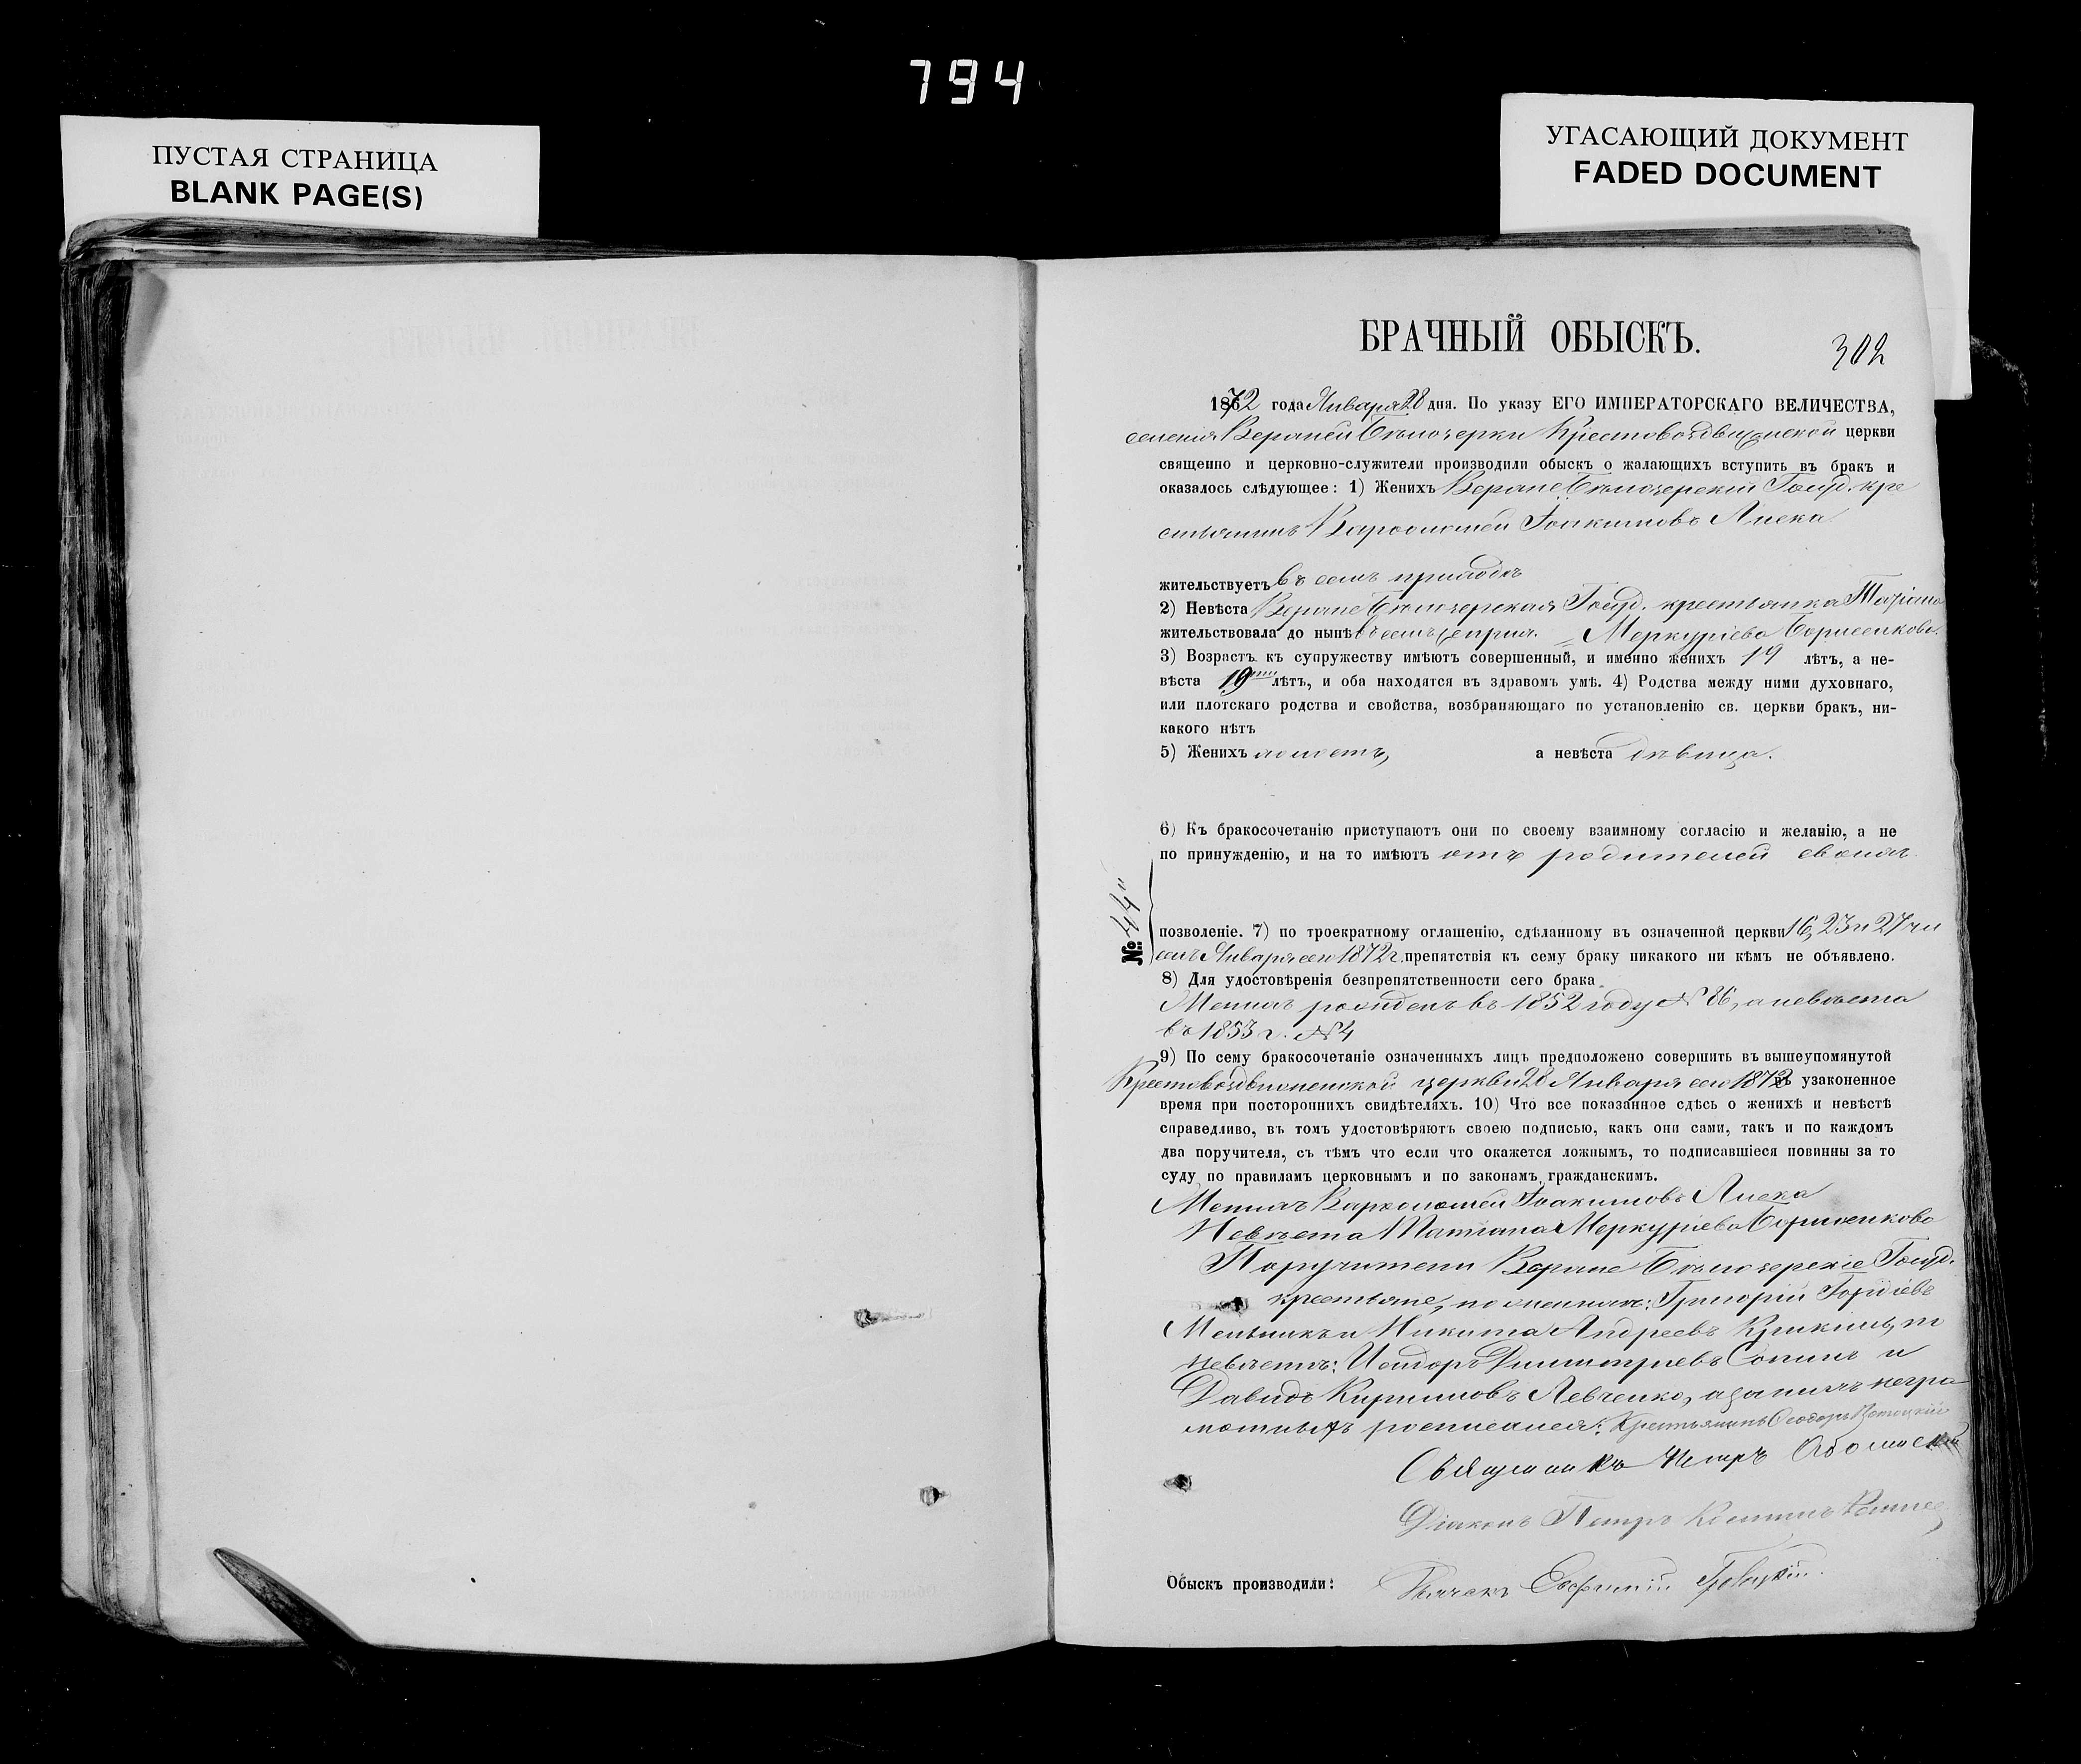 794
ПУСТАЯ СТРАНИЦА
BLANK PAGE(S)
УГАСАЮЩИЙ ДОКУМЕНТ
FADED DOCUMENT
БРАЧНЫЙ ОБЫСКЪ.
302
1872 года Января 28 дня. По указу ЕГО ИМПЕРАТОРСКАГО ВЕЛИЧЕСТВА,
селенія Верхней Бѣлозерки Крестовоздвиженской церкви
священно и церковно-служители производили обыскъ о жалающихъ вступить въ бракъ и
оказалось слѣдующее: 1) Женихъ Верхне Бѣлозерскій Госуд. кре
стьянинъ Варфоломей Іоакимовъ Лиска
жительствуетъ въ семъ приходѣ
2) Невѣста Верхне Бѣлозерская Госуд. крестьянка Татіана
жительствовала до нынѣ въ семъ же прих. Меркуріева Борисенкова.
3) Возрастъ къ супружеству имѣютъ совершенный, и именно женихъ 19 лѣтъ, а не-
вѣста 19 лѣтъ, и оба находятся въ здравомъ умѣ. 4) Родства между ними духовнаго,
или плотскаго родства и свойства, возбраняющаго по установленію св. церкви бракъ, ни-
какого нѣтъ
5) Женихъ холостъ, а невѣста дѣвица.
6) Къ бракосочетанію приступаютъ они по своему взаимному согласію и желанію, а не
по принужденію, и на то имѣютъ отъ родителей своихъ
№ 44
позволеніе. 7) по троекратному оглашенію, сдѣланному въ означенной церкви 16, 23 и 27 чи
слъ Января сего 1872 г. препятствія къ сему браку никакого ни кѣмъ не объявлено.
8) Для удостовѣренія безпрепятственности сего брака
Женихъ рожденъ въ 1852 году № 86, а невѣста
въ 1853 г. № 4
9) По сему бракосочетаніе означенныхъ лицъ предположено совершить въ вышеупомянутой
Крестовоздвиженской церкви 28 Января сего 1872 въ узаконенное
время при посторонихъ свидѣтеляхъ. 10) Что все показанное сдѣсь о женихѣ и невѣстѣ
справедливо, въ томъ удостовѣряютъ своею подписью, какъ они сами, такъ и по каждомъ
два поручителя, съ тѣмъ что если что окажется ложнымъ, то подписавшіеся повинны за то
суду по правиламъ церковнымъ и по законамъ гражданскимъ.
Женихъ Варфоломей Іоакимовъ Лиска
Невѣста Татіана Меркуріева Борисенкова
Поручители Верхне Бѣлозерскіе Госуд.
крестьяне, по женихѣ: Григорій Гордіевъ
Мельникъ и Никита Андреевъ
невѣстѣ: Исидоръ Димитріевъ и
Давидъ Кириловъ Левченко, а за нихъ негра
мотныхъ росписался: Крестьянинъ Ѳеодоръ
Священникъ Петръ
Діаконъ Петръ Константинъ
Обыскъ производили: Евфимій